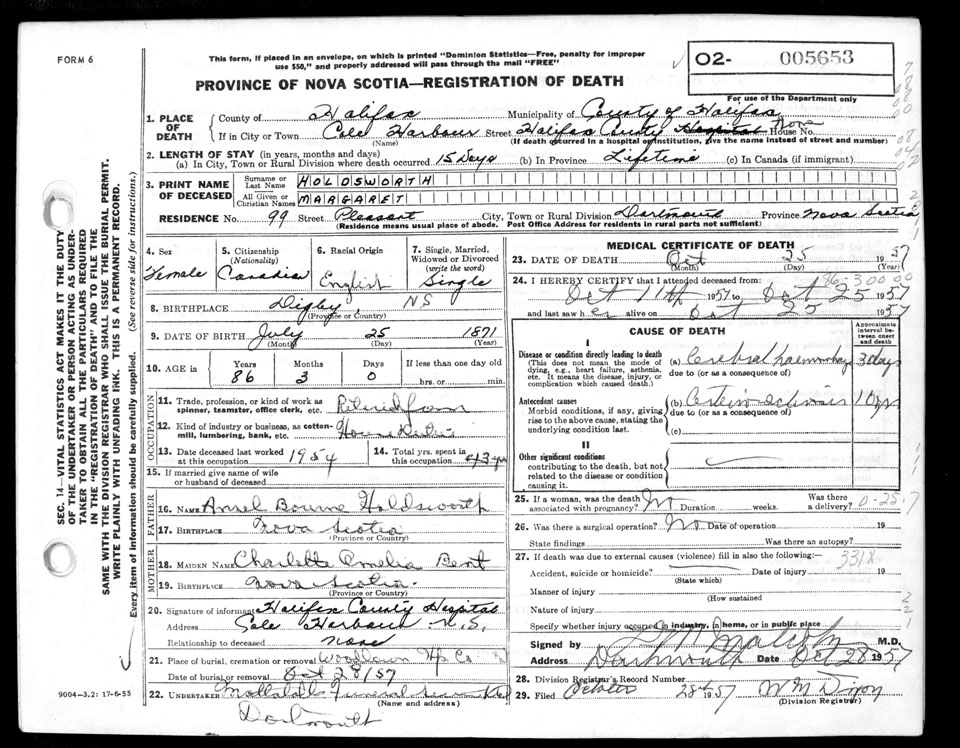 FORM 6
This form, if placed in an envelope, on which is printed "Dominion Statistics—Free, penalty for improper
use $50," and properly addressed will pass through the mail "FREE"
02- 005653
PROVINCE OF NOVA SCOTIA—REGISTRATION OF DEATH
For use of the Department only
1. PLACE OF DEATH
County of Halifax Municipality of County of Halifax
If in City or Town Cole Harbour Street Halifax County Hospital House No. None
(Name) (If death occurred in a hospital or institution, give the name instead of street and number)
2. LENGTH OF STAY (in years, months and days)
(a) In City, Town or Rural Division where death occurred 15 Days (b) In Province Lifetime (c) In Canada (if immigrant)
3. PRINT NAME OF DECEASED
Surname or Last Name HOLDSWORTH
All Given or Christian Names MARGARET
RESIDENCE No. 99 Street Pleasant City, Town or Rural Division Dartmouth Province Nova Scotia
(Residence means usual place of abode. Post Office Address for residents in rural parts not sufficient)
4. Sex Female
5. Citizenship (Nationality) Canadian
6. Racial Origin English
7. Single, Married, Widowed or Divorced (write the word) Single
8. BIRTHPLACE Digby, NS
(Province or Country)
9. DATE OF BIRTH July 25 1871
(Month) (Day) (Year)
10. AGE in Years Months Days If less than one day old
86 3 0 hrs. or min.
OCCUPATION
11. Trade, profession, or kind of work as spinner, teamster, office clerk, etc. Retired from
12. Kind of industry or business, as cotton-mill, lumbering, bank, etc.
13. Date deceased last worked at this occupation 1954
14. Total yrs. spent in this occupation 43 yrs
15. If married give name of wife or husband of deceased
FATHER
16. NAME Ansel Bourne Holdsworth
17. BIRTHPLACE Nova Scotia
(Province or Country)
MOTHER
18. MAIDEN NAME Charlotte Amelia Bent
19. BIRTHPLACE Nova Scotia
(Province or Country)
20. Signature of informant Halifax County Hospital
Address Cole Harbour N.S.
Relationship to deceased none
21. Place of burial, cremation or removal Woodlawn Hfx Co
Date of burial or removal Oct 28/57
22. UNDERTAKER Mattatall Funeral
(Name and address)
Dartmouth
MEDICAL CERTIFICATE OF DEATH
23. DATE OF DEATH Oct 25 1957
(Month) (Day) (Year)
86-300 00
24. I HEREBY CERTIFY that I attended deceased from
Oct 11th 1957 to Oct 25 1957
and last saw her alive on Oct 25 1957
CAUSE OF DEATH
Approximate interval between onset and death
I
Disease or condition directly leading to death
(This does not mean the mode of dying, e.g., heart failure, asthenia, etc. It means the disease, injury, or complication which caused death.)
(a) Cerebral haemorrhage 3 days
due to (or as a consequence of)
Antecedent causes
Morbid conditions, if any, giving rise to the above cause, stating the underlying condition last.
(b) Arteriosclerosis 10 yrs
due to (or as a consequence of)
(c)
II
Other significant conditions
contributing to the death, but not related to the disease or condition causing it.
25. If a woman, was the death associated with pregnancy? No Duration weeks. Was there a delivery?
0-25-7
26. Was there a surgical operation? No Date of operation 19
State findings Was there an autopsy?
27. If death was due to external causes (violence) fill in also the following:—
331X
Accident, suicide or homicide? Date of injury 19
(State which)
Manner of injury
(How sustained
Nature of injury
Specify whether injury occurred in industry, in home, or in public place
Signed by Malcolm M.D.
Address Dartmouth Date Oct 28 1957
28. Division Registrar's Record Number
29. Filed October 28th 1957 W M Dixon
(Division Registrar)
SEC. 14—VITAL STATISTICS ACT MAKES IT THE DUTY
OF THE UNDERTAKER OR PERSON ACTING AS UNDER-
TAKER TO OBTAIN ALL THE PARTICULARS REQUIRED
IN THE "REGISTRATION OF DEATH" AND TO FILE THE
SAME WITH THE DIVISION REGISTRAR WHO SHALL ISSUE THE BURIAL PERMIT.
WRITE PLAINLY WITH UNFADING INK. THIS IS A PERMANENT RECORD.
Every item of information should be carefully supplied. (See reverse side for instructions.)
9004-3.2: 17-6-55